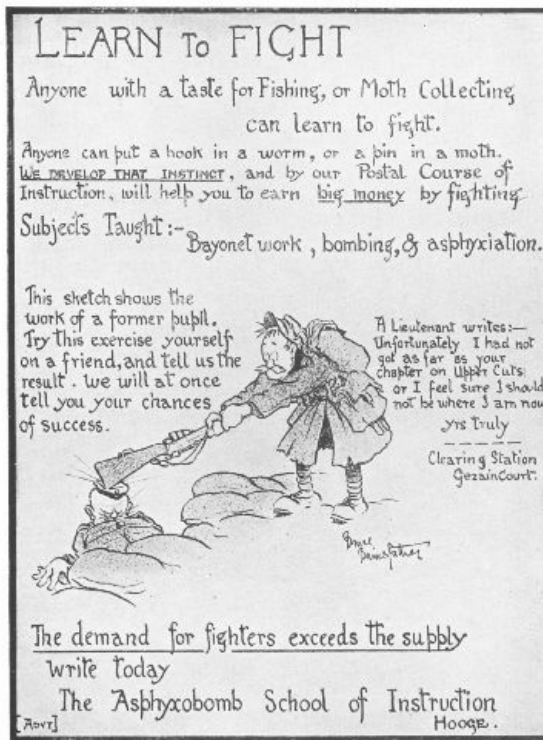 LEARN TO FIGHT
Anyone with a taste for Fishing, or Moth Collecting
can learn to fight.
Anyone can put a hook in a worm, or a pin in a moth.
WE DEVELOP THAT INSTINCT, and by our Postal Course of
Instruction, will help you to earn big money by fighting
Subjects Taught:-
Bayonet work, bombing, & asphyxiation.
This sketch shows the
work of a former pupil.
Try this exercise yourself
on a friend, and tell us the
result. We will at once
tell you your chances
of success.
A Lieutenant writes:—
Unfortunately I had not
got as far as your
chapter on Upper Cuts
or I feel sure I should
not be where I am now
yrs truly
Clearing Station
Gezaincourt.
Bruce
Bairnsfather
The demand for fighters exceeds the supply
write today
The Asphyxobomb School of Instruction
[ADVT]
HOOGE.